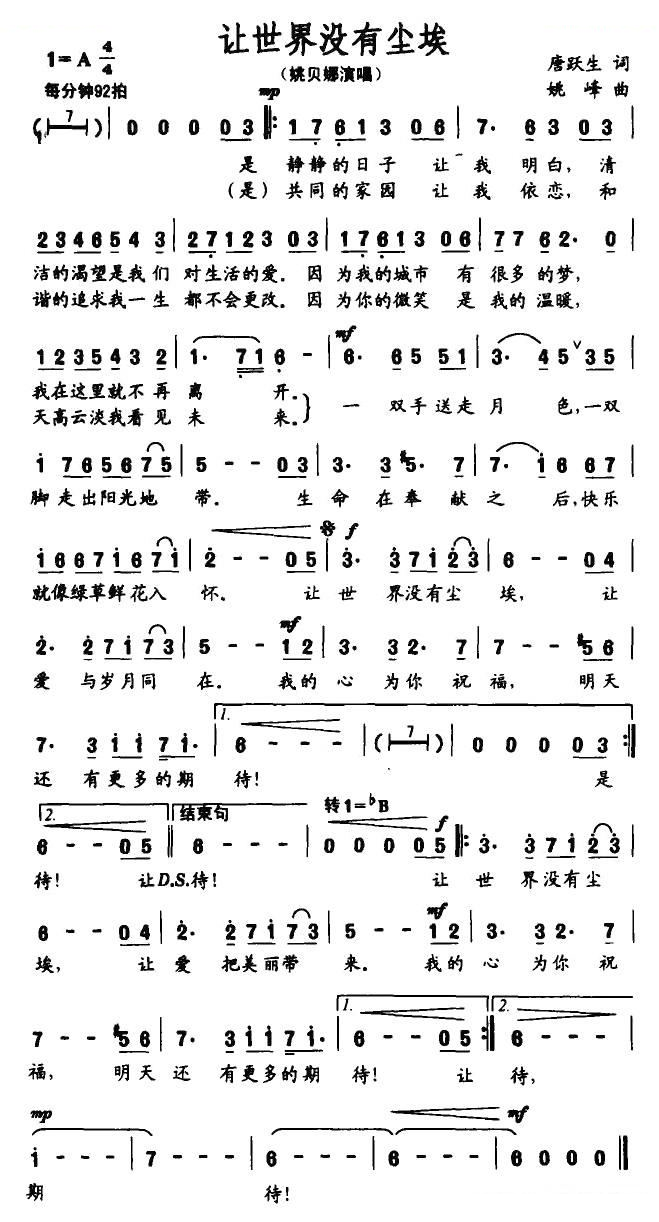 让世界没有尘埃
（姚贝娜演唱）
1=A 4/4
每分钟92拍
唐跃生 词
姚 峰 曲
mp
( 7 ) 0 0 0 0 3 ‖: 1 7 6 1 3 0 6 | 7· 6 3 0 3 |
是 静静的日子 让 我 明白，清
（是）共同的家园 让 我 依恋，和
2 3 4 6 5 4 3 | 2 7 1 2 3 0 3 | 1 7 6 1 3 0 6 | 7 7 6 2· 0 |
洁的渴望是我们 对生活的爱。因 为我的城市 有 很多的梦，
谐的追求我一生 都不会更改。因 为你的微笑 是 我的温暖，
mf
1 2 3 5 4 3 2 | 1· 7 1 6 - | 6· 6 5 5 1 | 3· 4 5 ∨ 3 5 |
我在这里就不再 离 开。 一 双手送走月 色，一双
天高云淡我看见 未 来。
1 7 6 5 6 7 5 | 5 - - 0 3 | 3· 3 #5· 7 | 7· 1 6 6 7 |
脚走出阳光地 带。 生 命 在奉 献之 后，快乐
f
1 6 6 7 1 6 7 1 | 2 - - 0 5 | 3· 3 7 1 2 3 | 6 - - 0 4 |
就像绿草鲜花入 怀。 让 世 界没有尘 埃， 让
mf
2· 2 7 1 7 3 | 5 - - 1 2 | 3· 3 2· 7 | 7 - - #5 6 |
爱 与岁月同 在。 我的 心 为你 祝 福， 明天
1.
7· 3 1 1 7 1· | 6 - - - | ( 7 ) | 0 0 0 0 3 :‖
还 有更多的期 待！ 是
2. 结束句 转1=♭B
f
6 - - 0 5 ‖ 6 - - - | 0 0 0 0 5 ‖: 3· 3 7 1 2 3 |
待！ 让D.S.待！ 让 世 界没有尘
mf
6 - - 0 4 | 2· 2 7 1 7 3 | 5 - - 1 2 | 3· 3 2· 7 |
埃， 让 爱 把美丽带 来。 我的 心 为你 祝
1. 2.
7 - - #5 6 | 7· 3 1 1 7 1· | 6 - - 0 5 :‖ 6 - - - |
福， 明天 还 有更多的期 待！ 让 待，
mp mf
1 - - - | 7 - - - | 6 - - - | 6 - - - | 6 0 0 0 ‖
期 待！